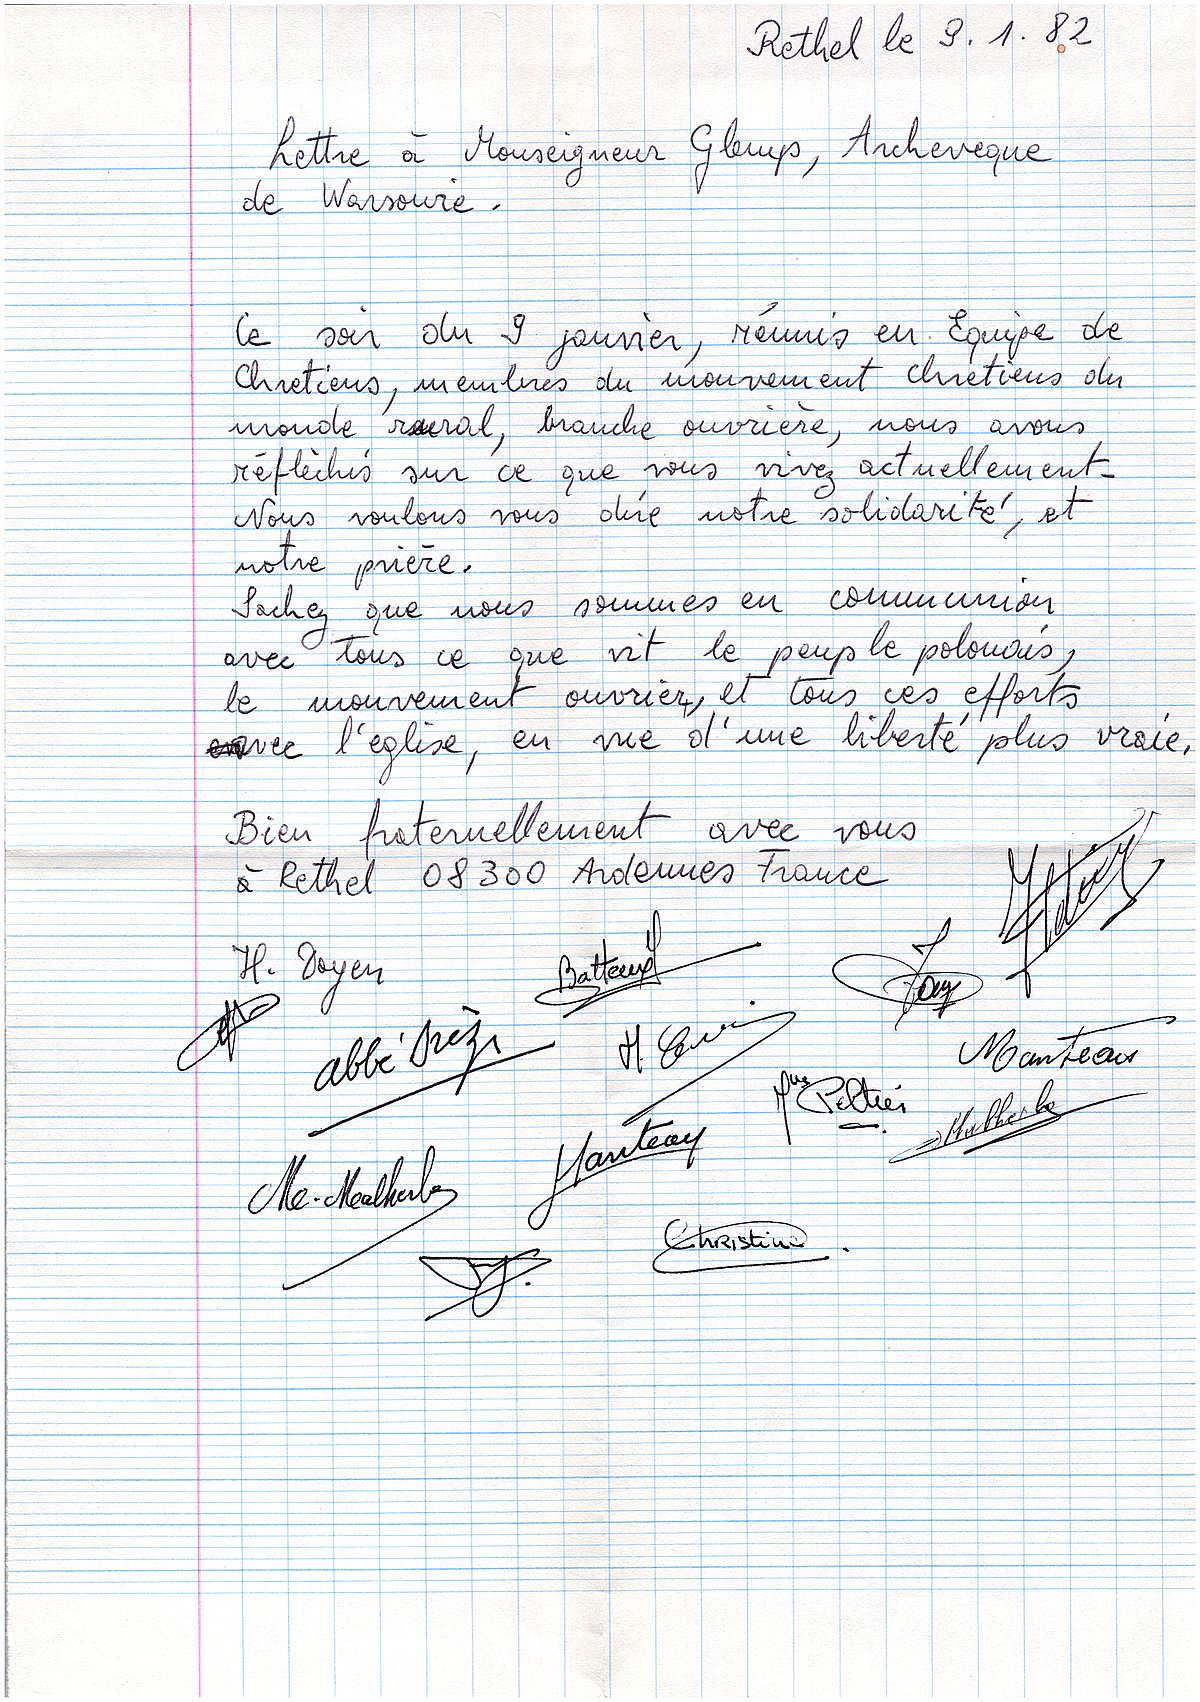 Rethel le 9.1.82
Lettre à Monseigneur Glemp, Archeveque
de Warsovie.
Ce soir du 9 janvier, réunis en Equipe de
Chretiens, membres du mouvement chretiens du
monde rural, branche ouvrière, nous avons
réflèchis sur ce que vous vivez actuellement-
Nous voulons vous dire notre solidarité, et
notre prière.
Sachez que nous sommes en communion
avec tous ce que vit le peuple polonais,
le mouvement ouvrier, et tous ces efforts
avec l'église, en vue d'une liberté plus vraie.
Bien fraternellement avec vous
à Rethel 08300 Ardennes France
H. Doyen
Batteux
abbé
Manteau
Me Peltier
Malherbe
Manteau
Me-Malherbe
Christine